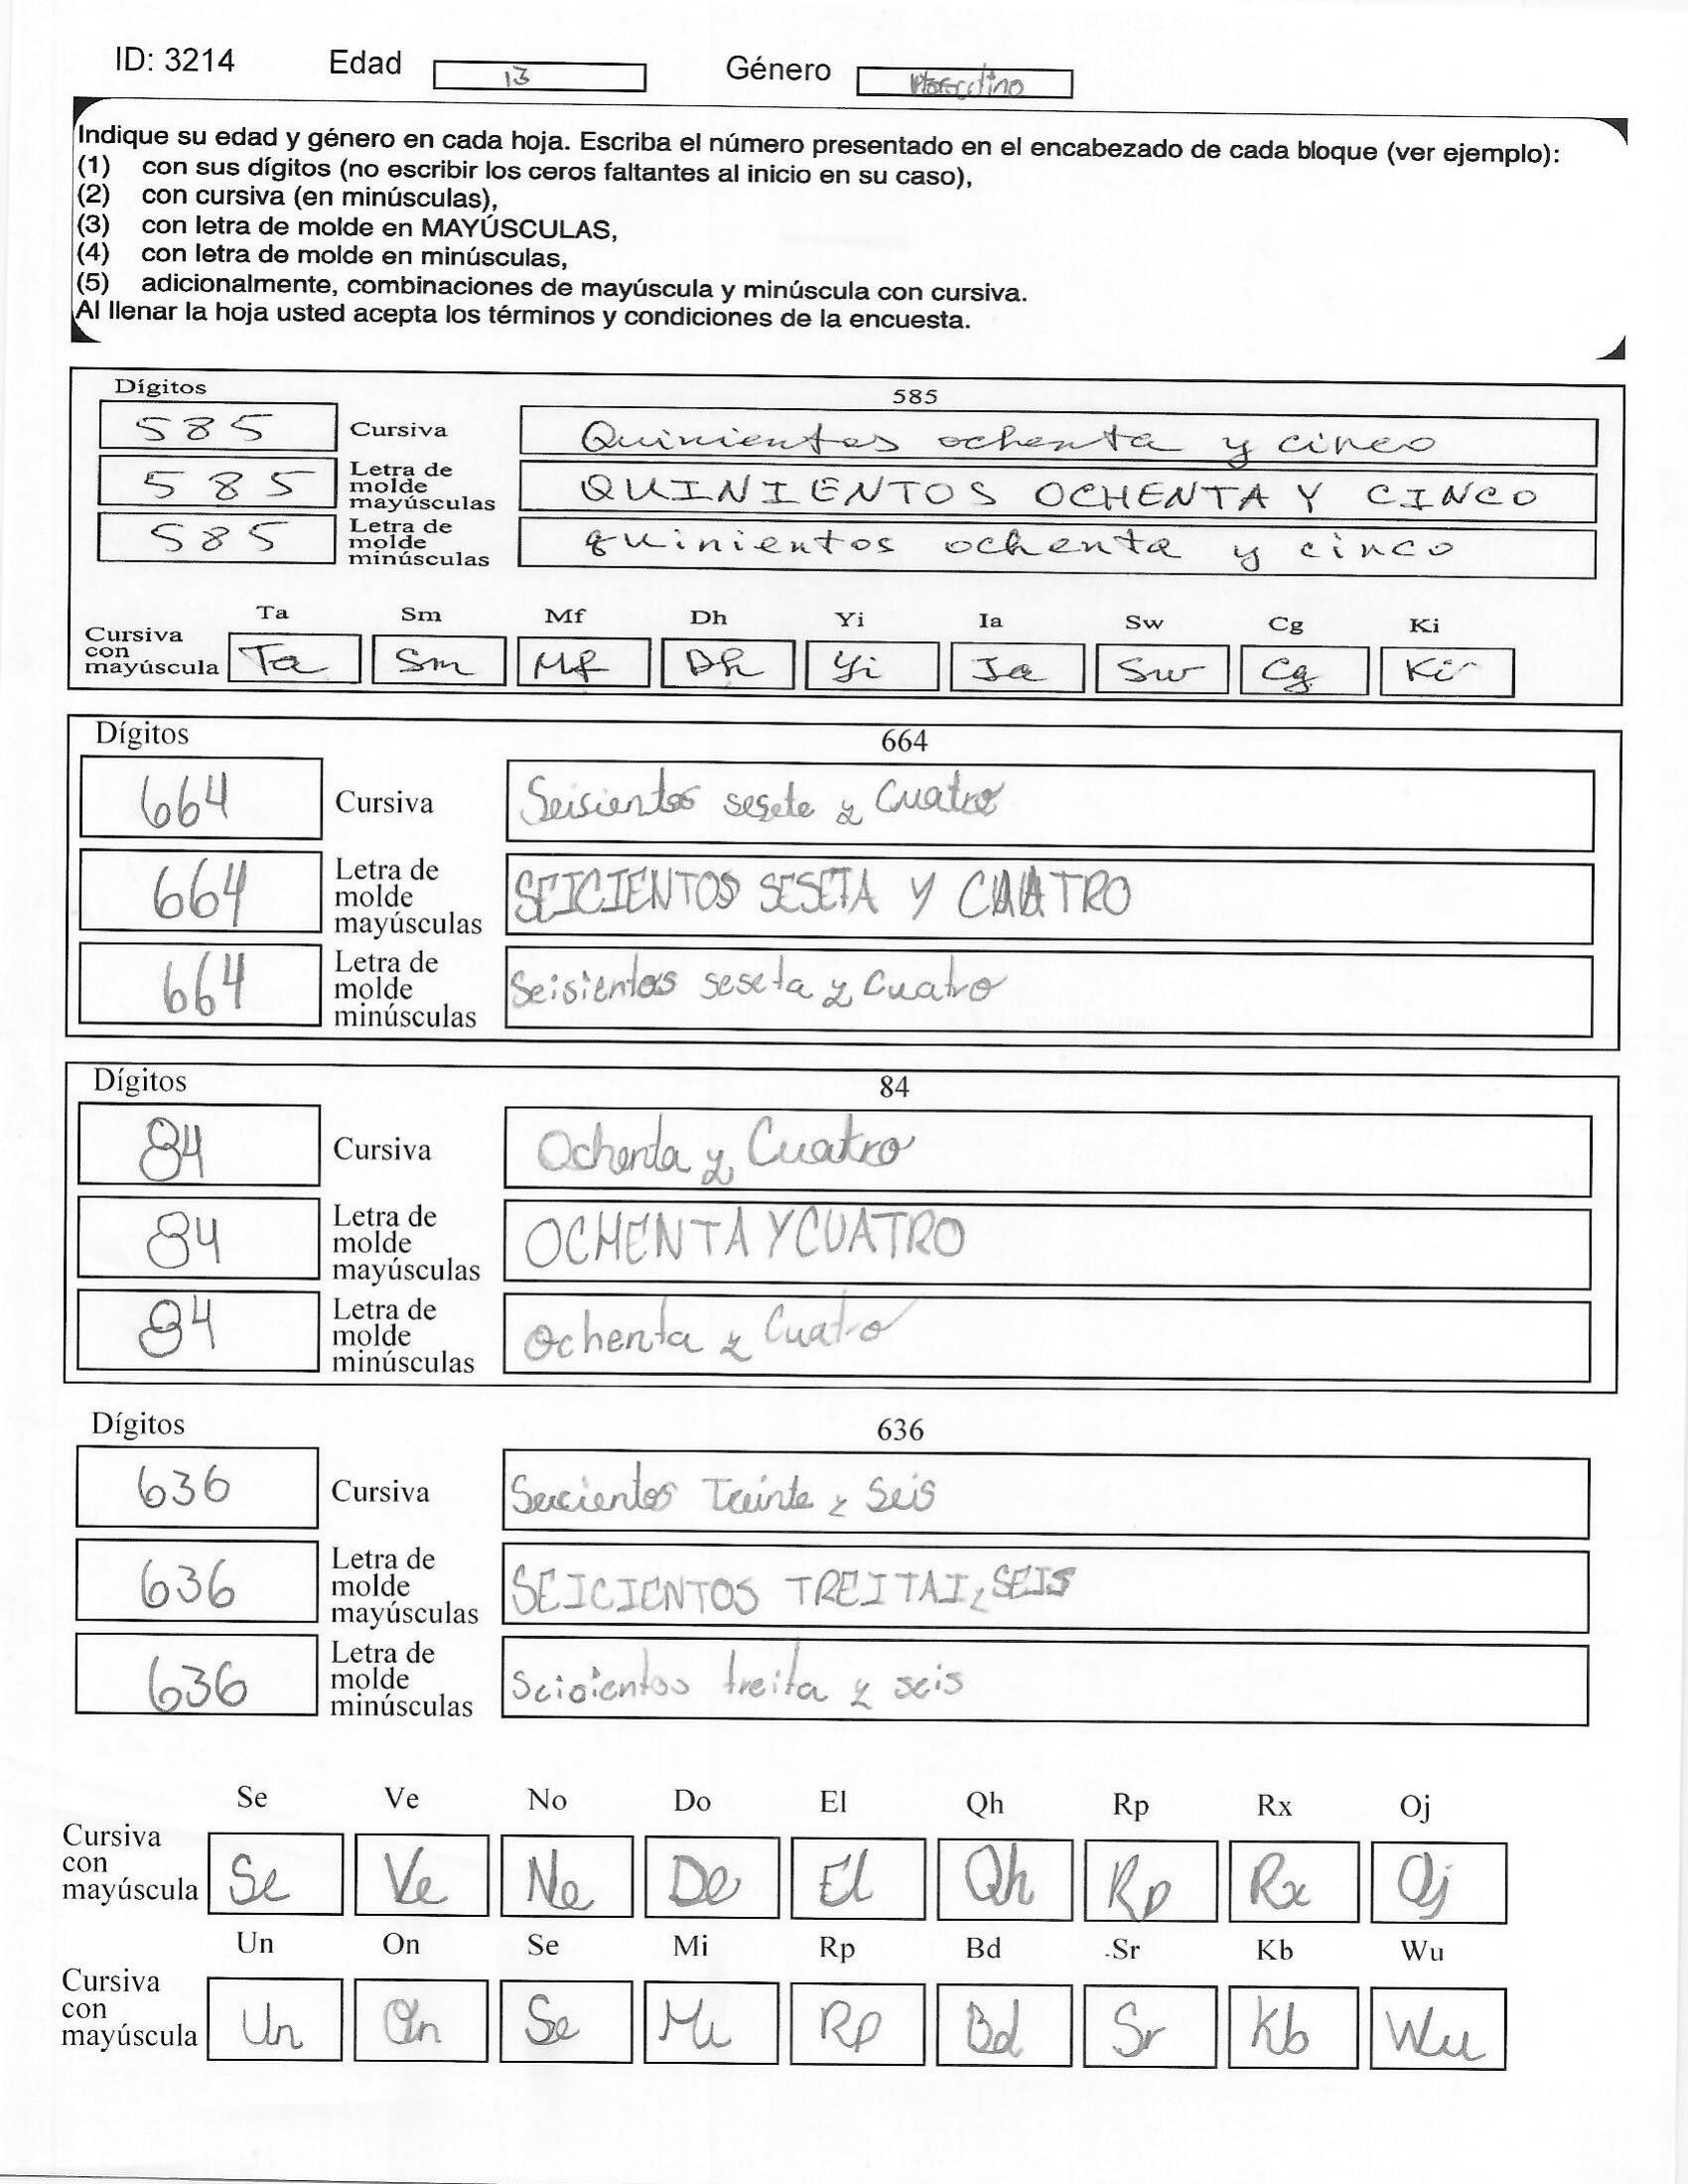 ID: 3214 Edad 13 Género Masculino
Indique su edad y género en cada hoja. Escriba el número presentado en el encabezado de cada bloque (ver ejemplo):
(1) con sus dígitos (no escribir los ceros faltantes al inicio en su caso),
(2) con cursiva (en minúsculas),
(3) con letra de molde en MAYÚSCULAS,
(4) con letra de molde en minúsculas,
(5) adicionalmente, combinaciones de mayúscula y minúscula con cursiva.
Al llenar la hoja usted acepta los términos y condiciones de la encuesta.
Dígitos 585
585 Cursiva Quinientos ochenta y cinco
585 Letra de molde mayúsculas QUINIENTOS OCHENTA Y CINCO
585 Letra de molde minúsculas quinientos ochenta y cinco
Ta Sm Mf Dh Yi Ia Sw Cg Ki
Cursiva con mayúscula Ta Sm Mf Dh Yi Ia Sw Cg Ki
Dígitos 664
664 Cursiva Seisientos sesete y Cuatro
664 Letra de molde mayúsculas SEICIENTOS SESETA Y CUATRO
664 Letra de molde minúsculas Seisientos seseta y Cuatro
Dígitos 84
84 Cursiva Ochenta y Cuatro
84 Letra de molde mayúsculas OCHENTA Y CUATRO
84 Letra de molde minúsculas Ochenta y Cuatro
Dígitos 636
636 Cursiva Seicientos Treinta y Seis
636 Letra de molde mayúsculas SEICIENTOS TREITAI y SEIS
636 Letra de molde minúsculas Seisientos treita y seis
Se Ve No Do El Qh Rp Rx Oj
Cursiva con mayúscula Se Ve No Do El Qh Rp Rx Oj
Un On Se Mi Rp Bd Sr Kb Wu
Cursiva con mayúscula Un On Se Mi Rp Bd Sr Kb Wu